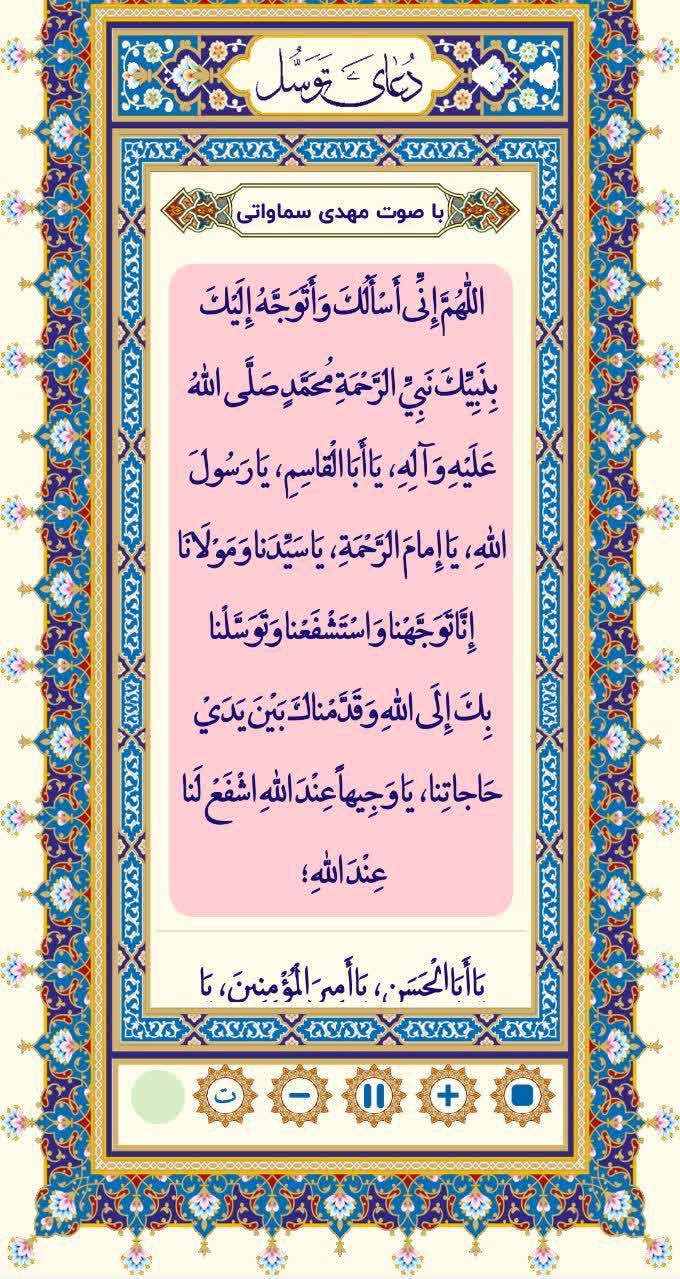 دُعای تَوَسُّل
با صوت مهدی سماواتی
اللّٰهُمَّ إِنِّى أَسْأَلُكَ وَأَتَوَجَّهُ إِلَيْكَ
بِنَبِيِّكَ نَبِيِّ الرَّحْمَةِ مُحَمَّدٍ صَلَّى اللّٰهُ
عَلَيْهِ وَآلِهِ، يَا أَبَا الْقاسِمِ، يَا رَسُولَ
اللّٰهِ، يَا إِمامَ الرَّحْمَةِ، يَا سَيِّدَنا وَمَوْلَانَا
إِنَّا تَوَجَّهْنا وَاسْتَشْفَعْنا وَتَوَسَّلْنا
بِكَ إِلَى اللّٰهِ وَقَدَّمْناكَ بَيْنَ يَدَيْ
حَاجاتِنا، يَا وَجِيهاً عِنْدَ اللّٰهِ اشْفَعْ لَنا
عِنْدَ اللّٰهِ؛
يَا أَبَا الْحَسَنِ، يَا أَمِيرَ الْمُؤْمِنِينَ، يَا
ت